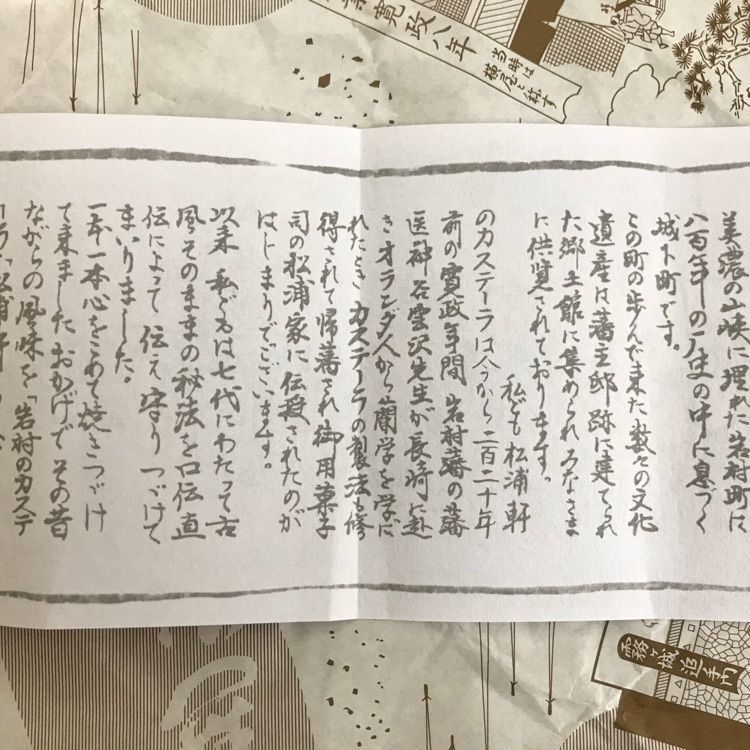 寛政八年
当時は
横屋と称す
美濃の山峡に埋れた岩村町は
八百年の歴史の中に息づく
城下町です。
この町の歩んで来た数々の文化
遺産は藩主邸跡に建てられ
た郷土館に集められみなさま
に供覧されております。
私ども松浦軒
のカステーラは今から二百二十年
前の寛政年間岩村藩の藩
医神谷雲沢先生が長崎に赴
きオランダ人から蘭学を学ば
れたときカステーラの製法も修
得されて帰藩され御用菓子
司の松浦家に伝授されたのが
はじまりでございます。
以来私どもは七代にわたって古
風そのままの秘法を口伝直
伝によって伝え守りつづけて
まいりました。
一本一本心をこめて焼きつづけ
て来ましたおかげでその昔
ながらの風味を「岩村のカステ
霧ヶ城追手門